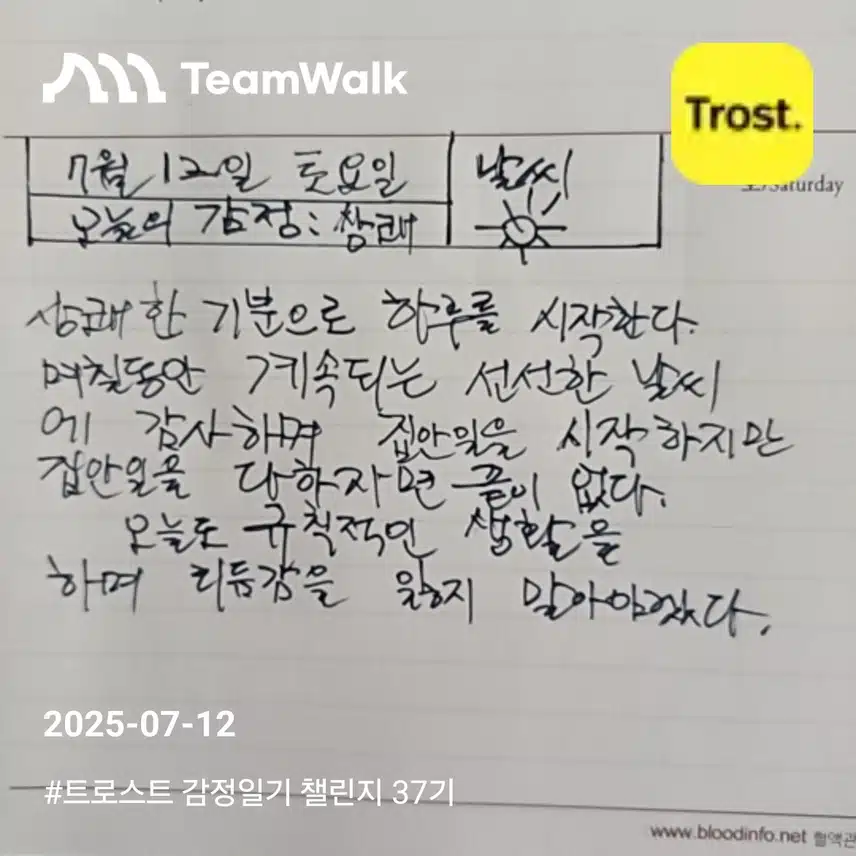 TeamWalk
Trost.
7월 12일 토요일
날씨
토/Saturday
오늘의 감정: 상쾌
상쾌한 기분으로 하루를 시작한다.
며칠동안 계속되는 선선한 날씨
에 감사하며 집안일을 시작하지만
집안일을 다하자면 끝이 없다.
오늘도 규칙적인 생활을
하며 리듬감을 잃치 말아야겠다.
2025-07-12
#트로스트 감정일기 챌린지 37기
www.bloodinfo.net 혈액관